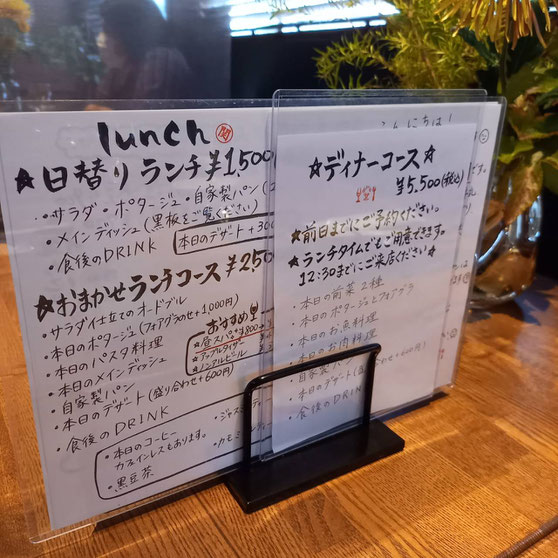 lunch
★日替りランチ ¥1,500
・サラダ・ポタージュ・自家製パン
・メインディッシュ(黒板をご覧ください)
・食後のDRINK
本日のデザート+300
★おまかせランチコース ¥2,500
・サラダ仕立てのオードブル
・本日のポタージュ(フォアグラのせ+1,000円)
・本日のパスタ料理
・本日のメインディッシュ
・自家製パン
・本日のデザート(盛り合わせ+600円)
・食後のDRINK
おすすめ
★昼スパ ¥800
★アップルタイザー
★ノンアルビール
・本日のコーヒー
カフェインレスもあります。
・黒豆茶
・ジャス
・カモミ
こんにちは!
☆ディナーコース☆
¥5,500(税込)
★前日までにご予約ください。
★ランチタイムでもご用意できます。
12:30までにご来店ください★
・本日の前菜2種
・本日のポタージュとフォアグラ
・本日のお魚料理
・本日のお肉料理
・自家製パン
・本日のデザート(盛り合わせ+600円)
・食後のDRINK